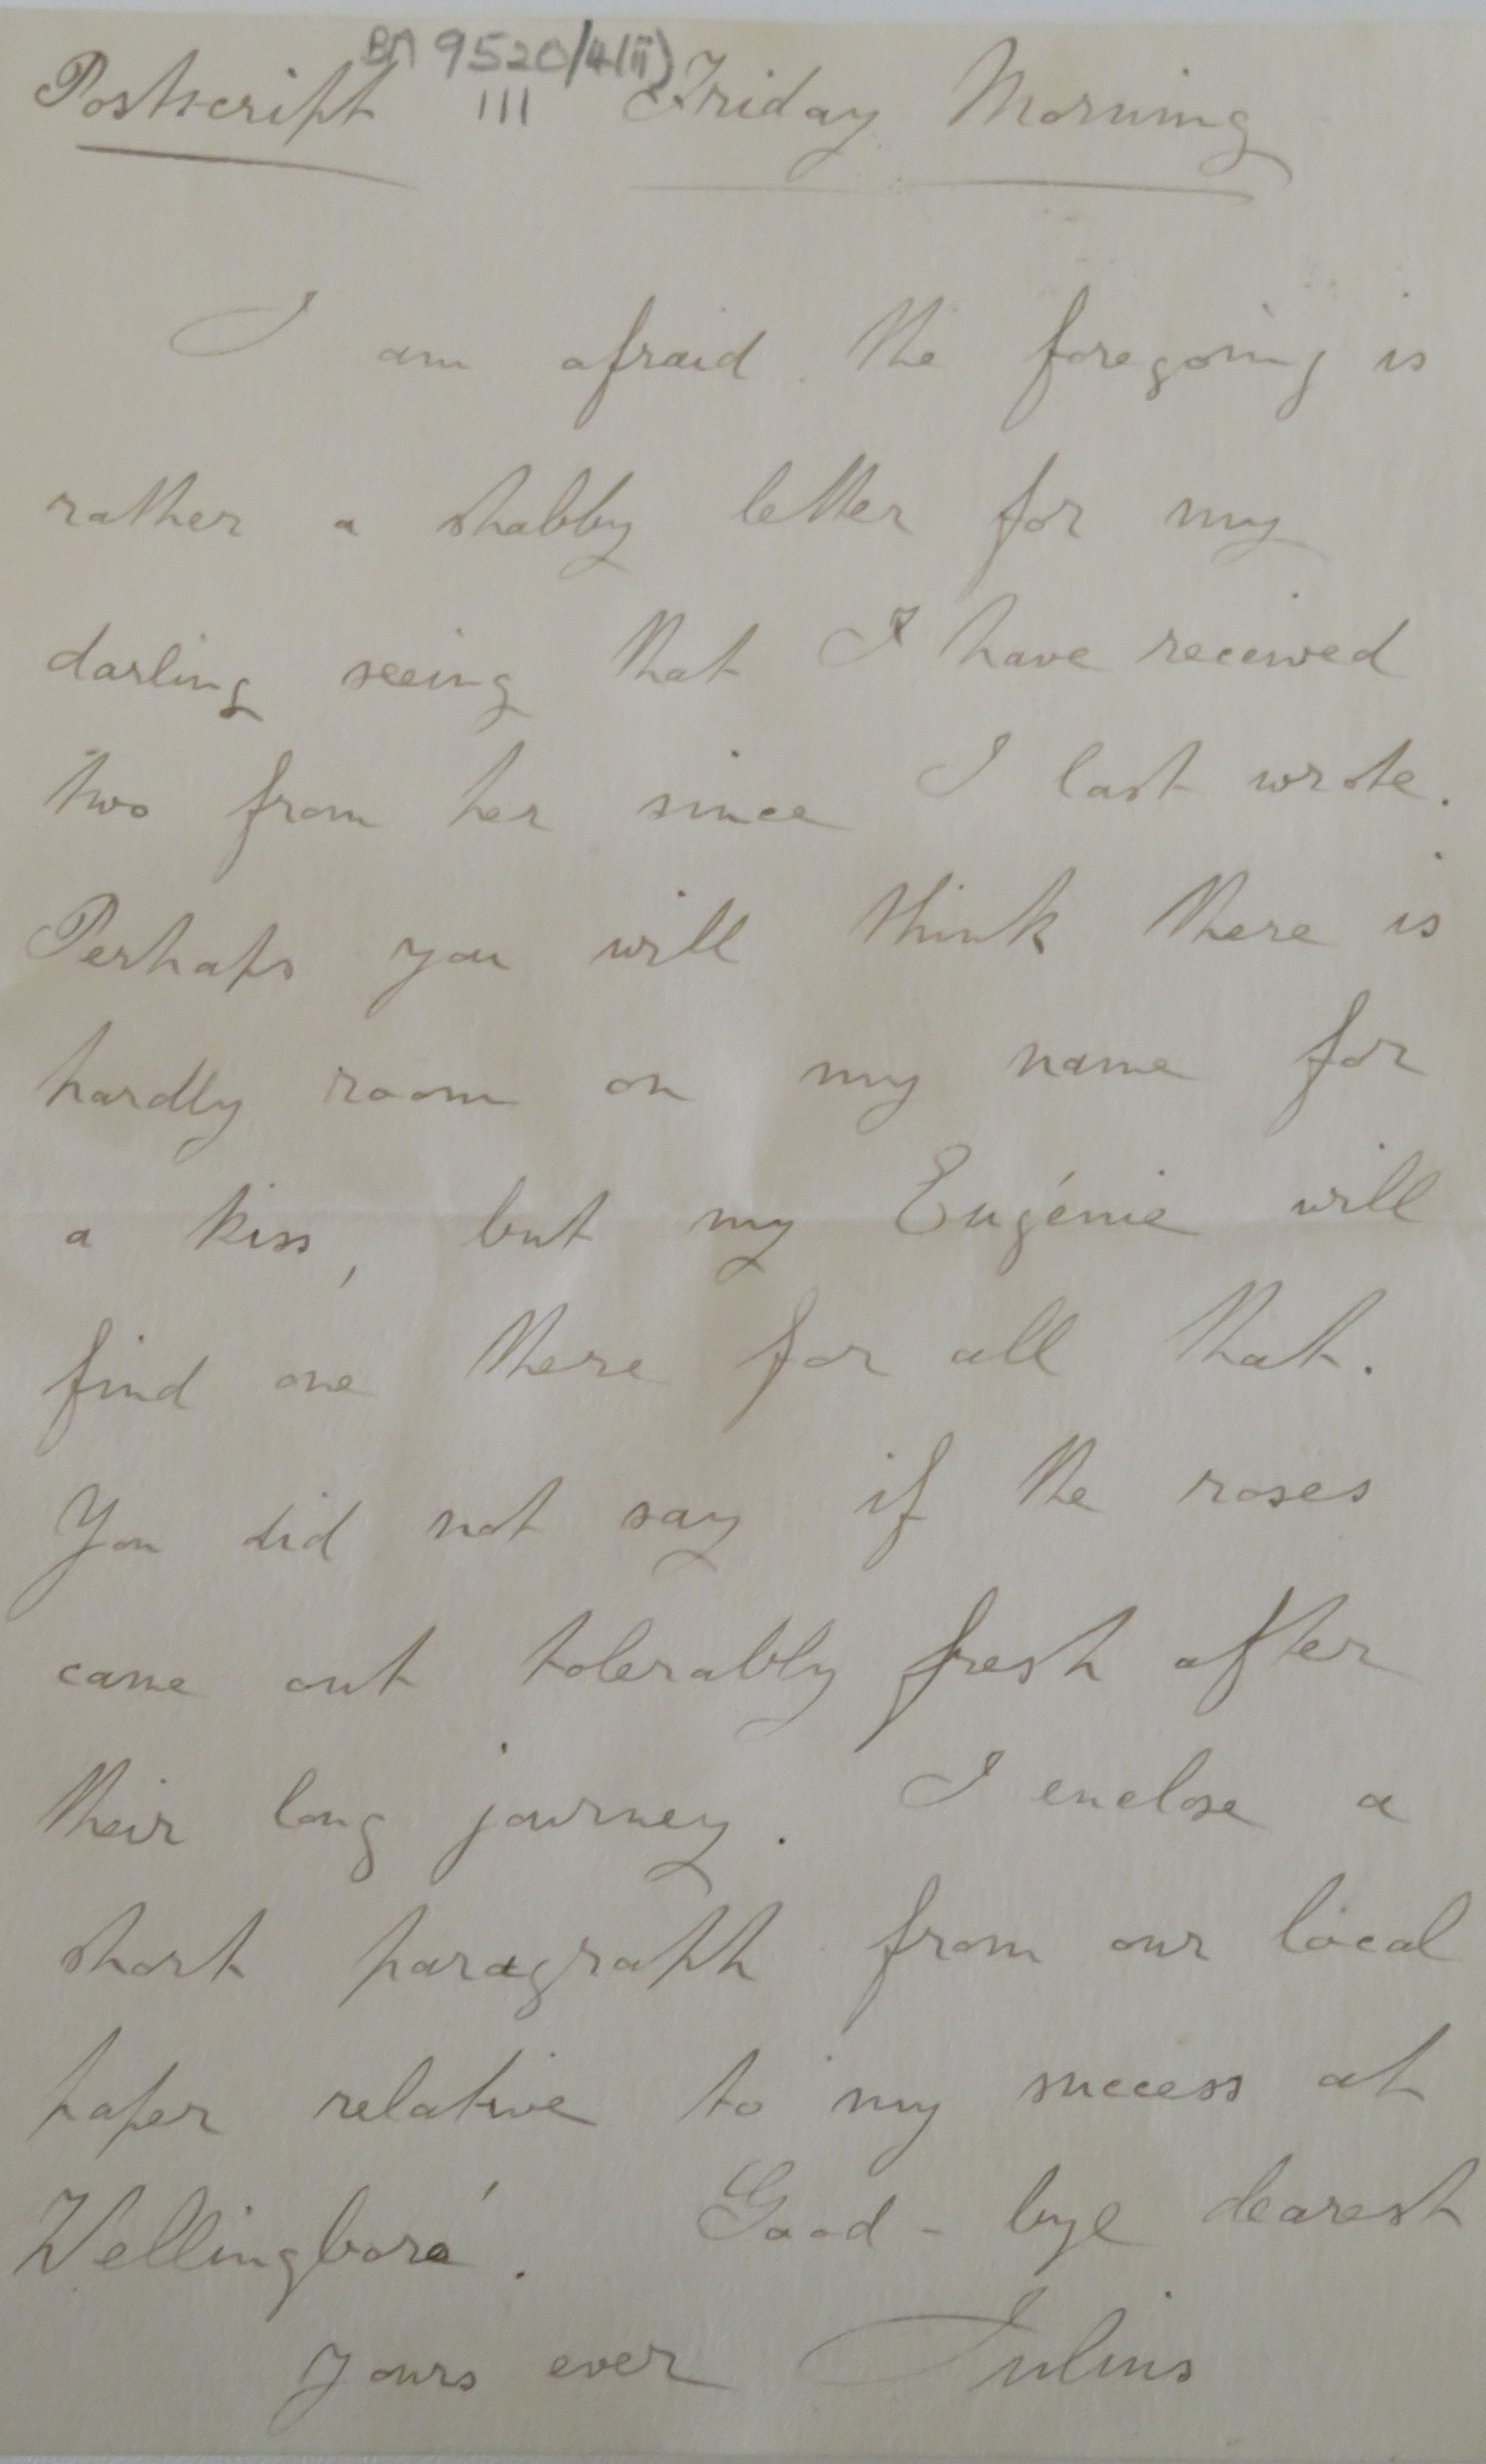 BM 9520/4(ii)
Postscript III Friday Morning
I am afraid the foregoing is
rather a shabby letter for my
darling seeing that I have received
two from her since I last wrote.
Perhaps you will think there is
hardly room on my name for
a kiss, but my Eugénie will
find one there for all that.
You did not say if the roses
came out tolerably fresh after
their long journey. I enclose a
short paragraph from our local
paper relative to my success at
Wellingboro'. Good-bye dearest
Yours ever Julius